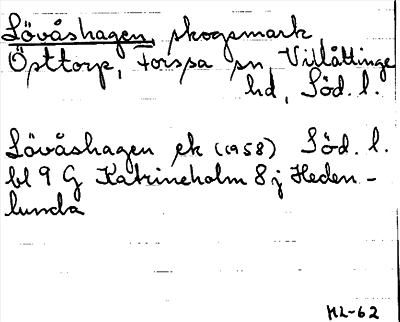 Lövåshagen, skogsmark
Öpttorp, Forssa sn Villåttinge
hd, Söd. l.
Lövåshagen ek (1958) Söd. l.
bl 9 G Katrineholm 8 j Heden-
lunda
HL-62